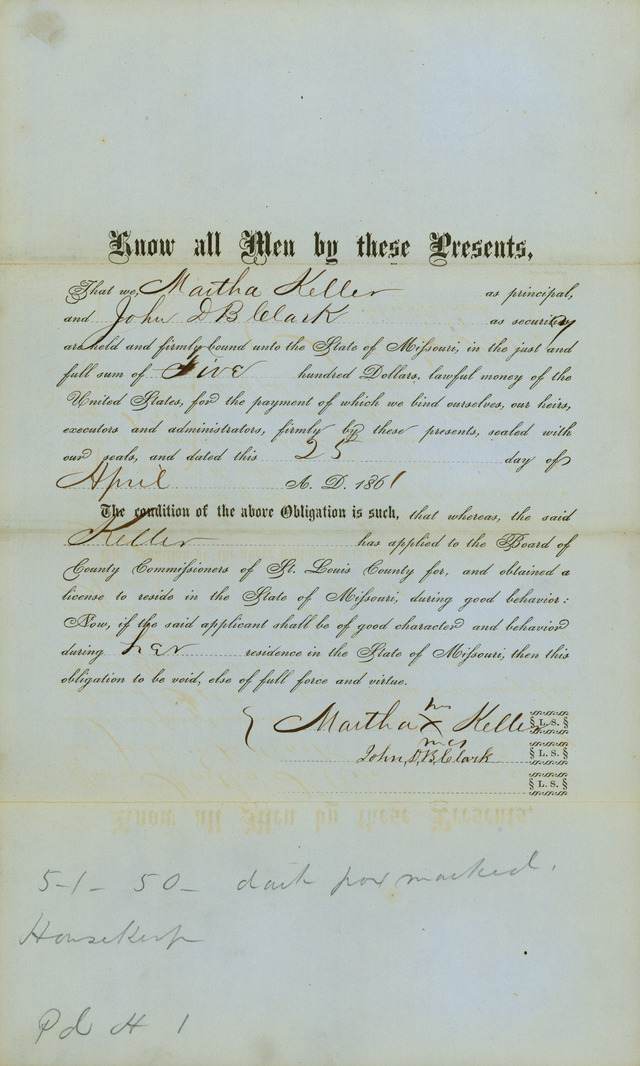 Know all Men by these Presents,
That we, Martha Keller as principal,
and John D B Clark as security
are held and firmly bound unto the State of Missouri, in the just and
full sum of Five hundred Dollars, lawful money of the
United States, for the payment of which we bind ourselves, our heirs,
executors and administrators, firmly by these presents, sealed with
our seals, and dated this 25 day of
April A. D. 1861
The condition of the above Obligation is such, that whereas, the said
Keller has applied to the Board of
County Commissioners of St. Louis County for, and obtained a
license to reside in the State of Missouri, during good behavior:
Now, if the said applicant shall be of good character and behavior
during her residence in the State of Missouri, then this
obligation to be void, else of full force and virtue.
Martha X Keller L. S.
John D. B. Clark L. S.
L. S.
5-1- 50- dark pox marked.
Pd H 1